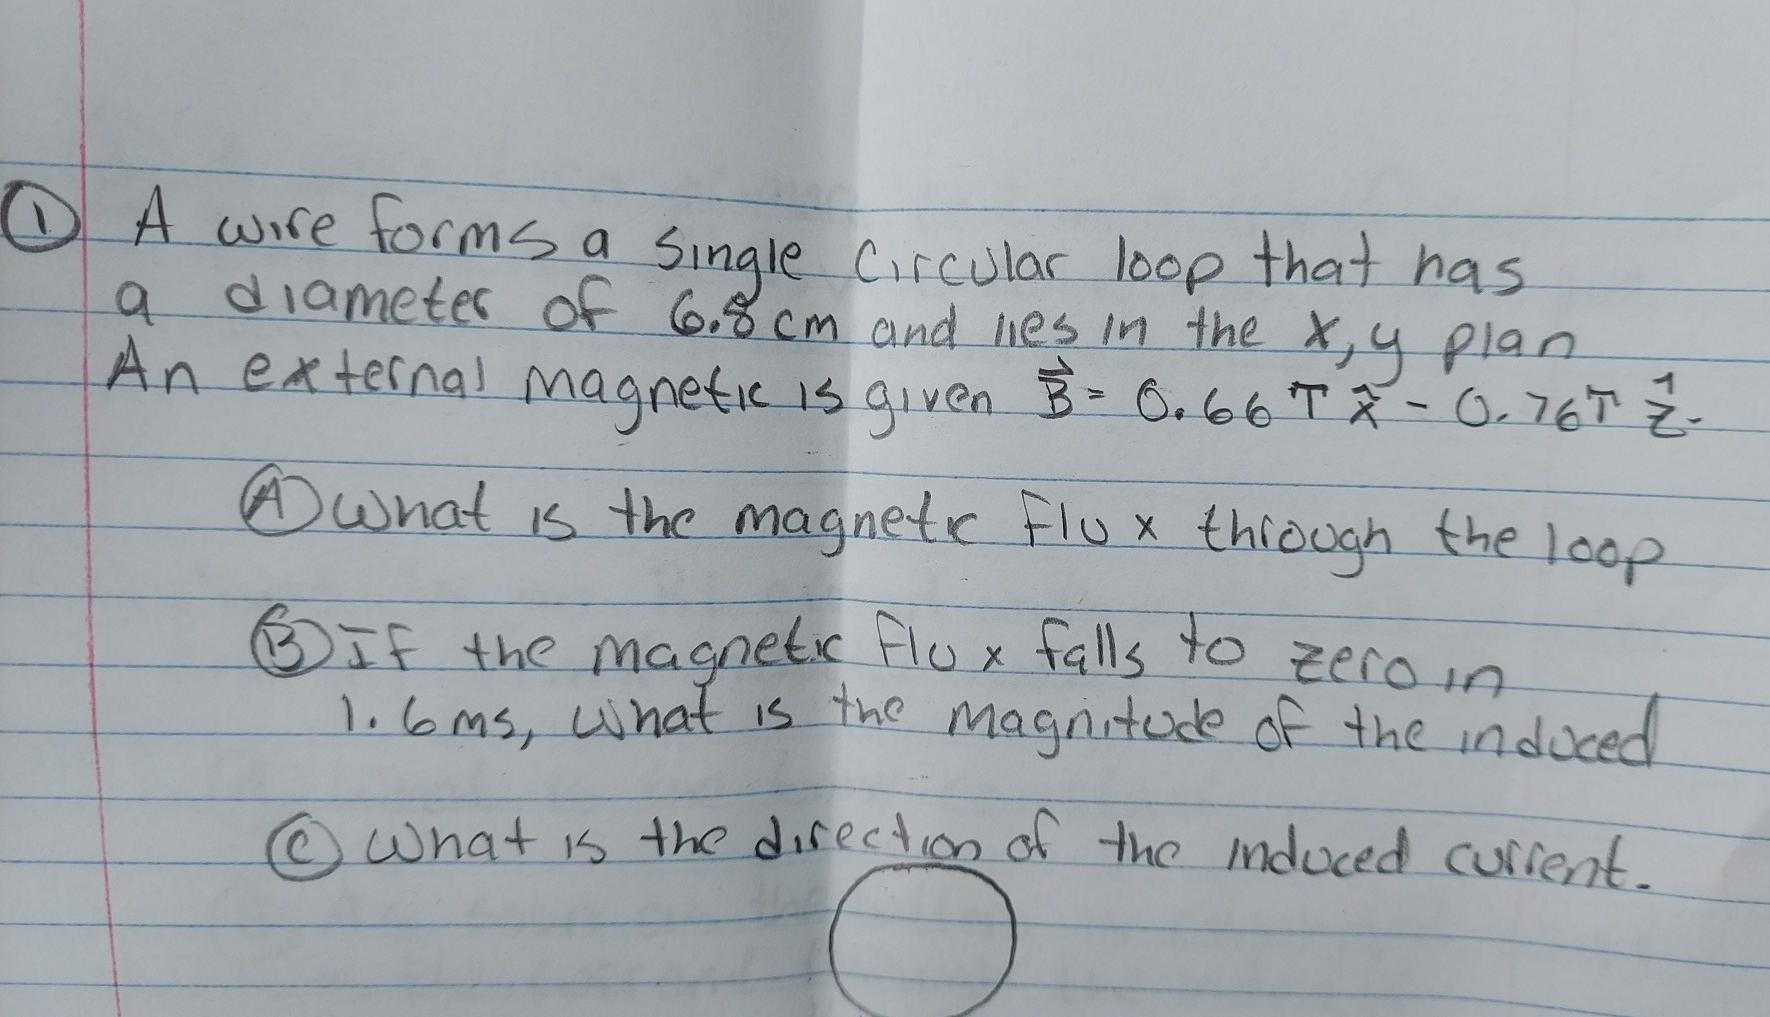 ① A wire forms a single circular loop that has
a diameter of 6.8 cm and lies in the x, y plan
An external magnetic is given B⃗ = 0.66 T x̂ - 0.76 T ẑ.
Ⓐ What is the magnetic flux through the loop
Ⓑ If the magnetic flux falls to zero in
1.6 ms, what is the magnitude of the induced
Ⓒ What is the direction of the induced current.